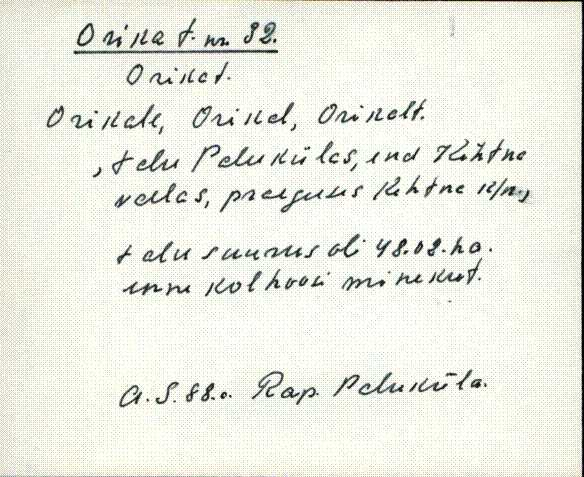 Orika t. nr. 32.
Orikat.
Orikale, Orikal, Orikalt.
, talu Palukülas, end Kehtna
vallas, praeguses Kehtna k/n.,
talu suurus oli 48.08. ha.
enne kolhoosi minekut.
A. S. 88. a. Rap. Paluküla.